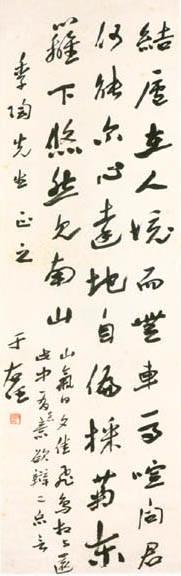 結廬在人境而無車馬喧問君
何能尔心遠地自偏採菊東
籬下悠然見南山
山氣日夕佳飛鳥相与還
此中有真意欲辯已忘言
季陶先生正之
于右任